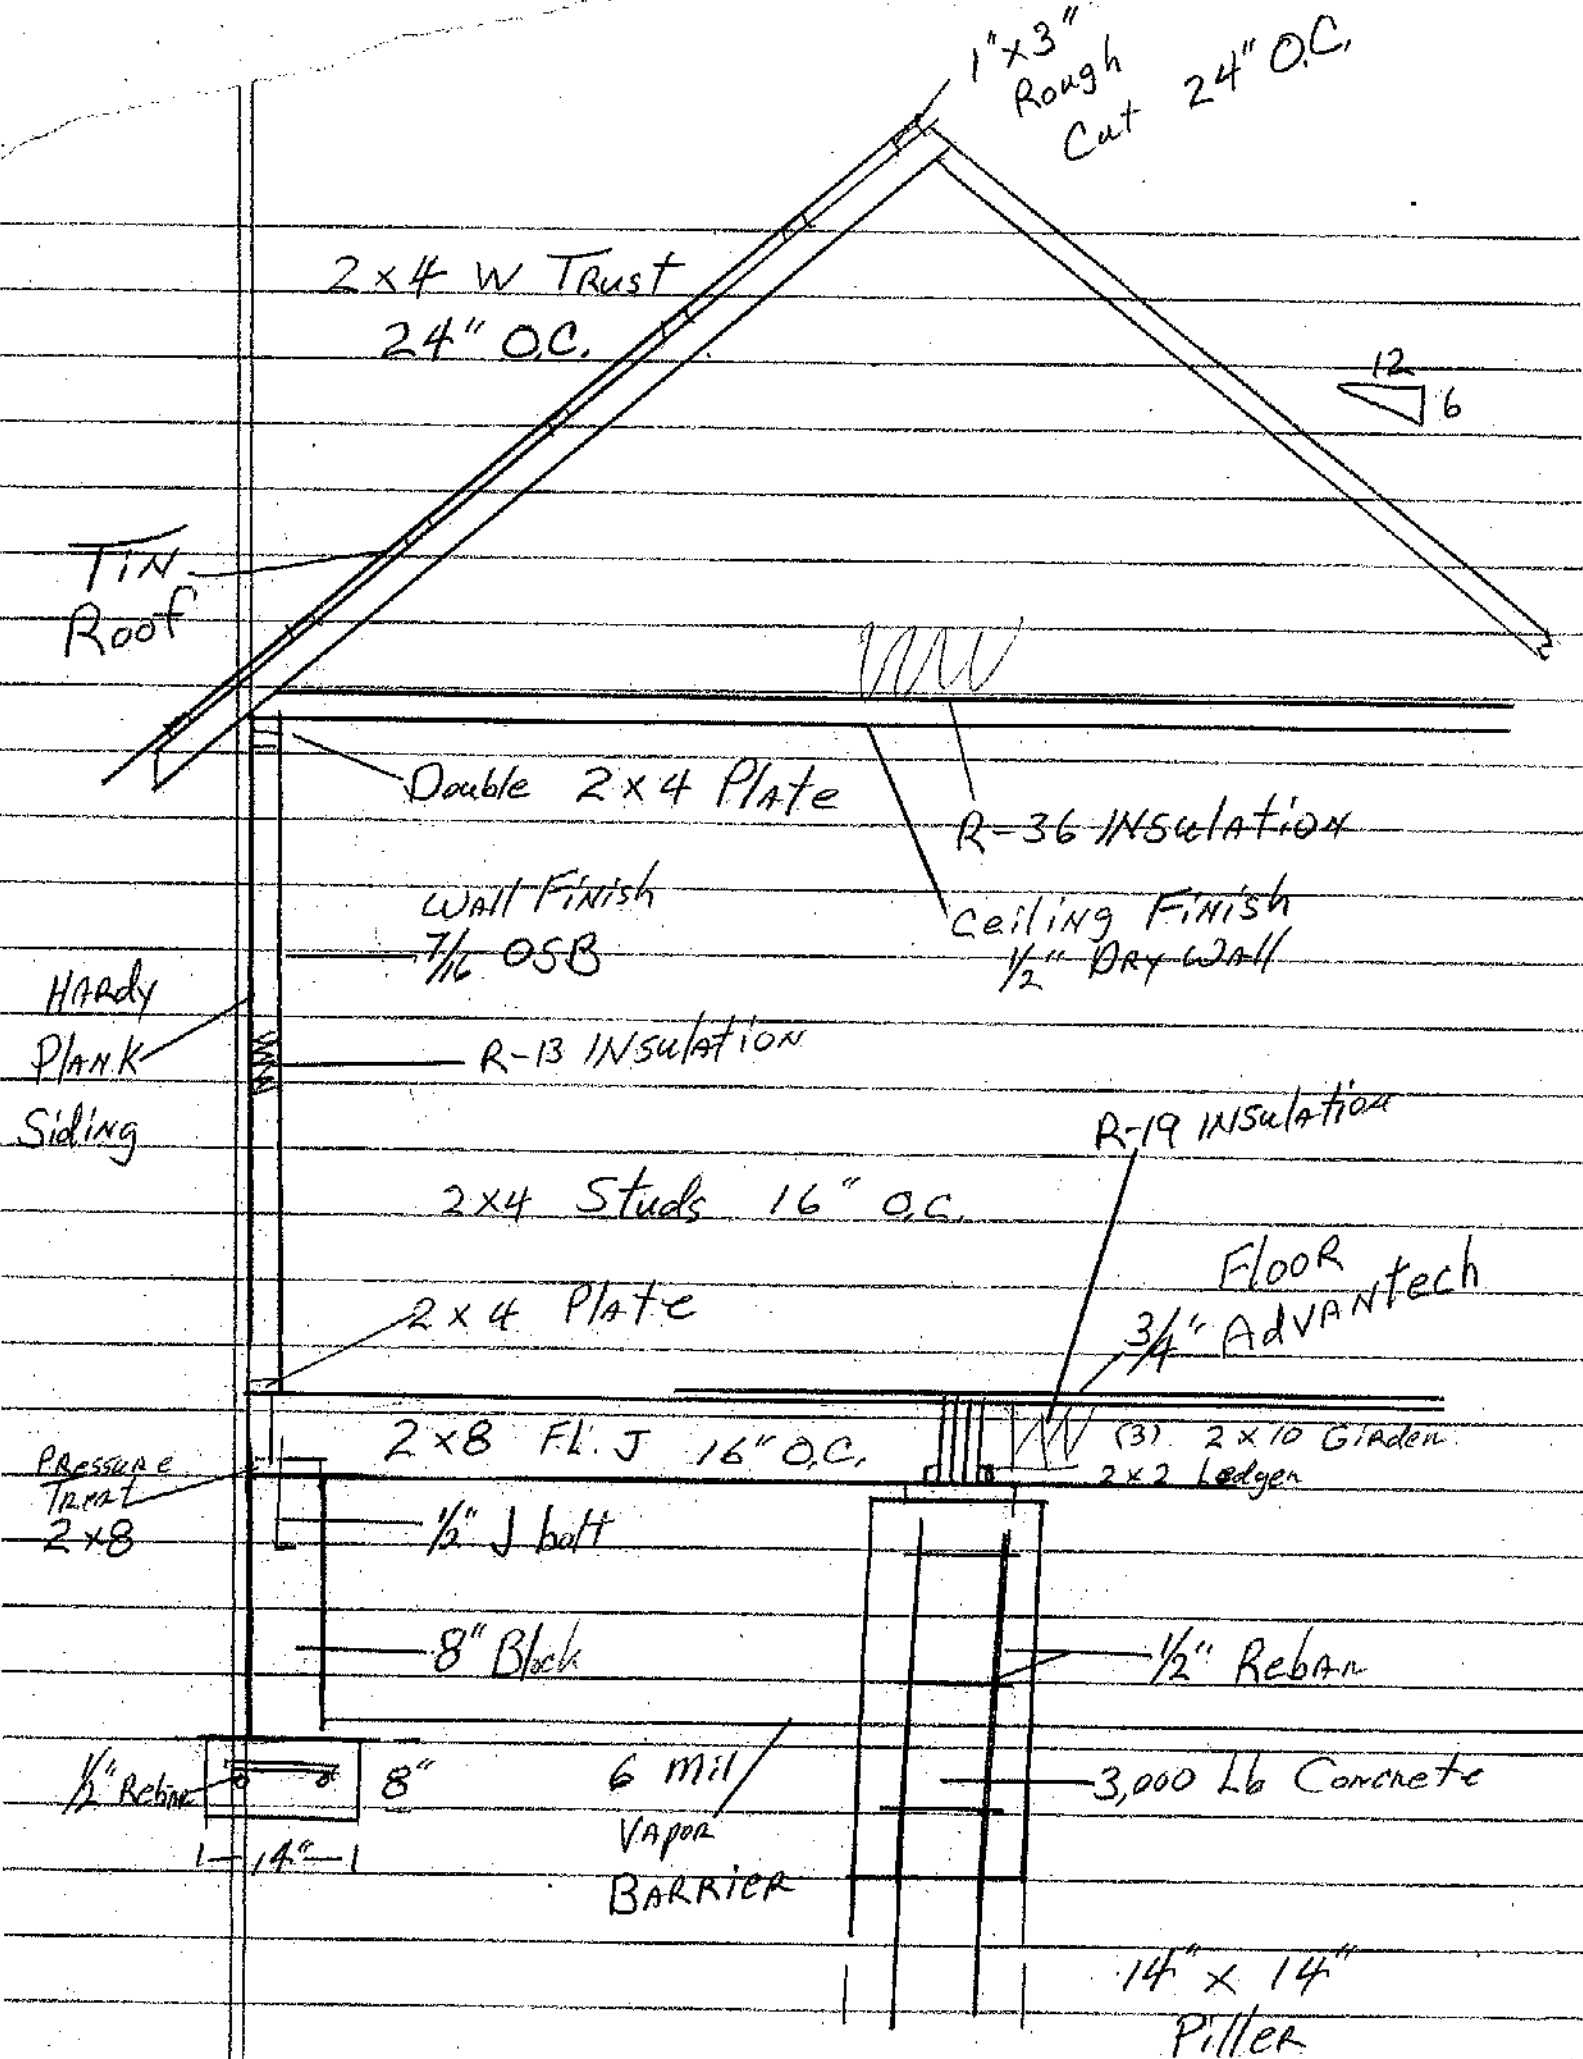 1"x3"
Rough
Cut 24" O.C.
2x4 W TRUST
24" O.C.
12
6
TIN
Roof
Double 2x4 PLATE
R-36 INSULATION
WALL FINISH
7/16 OSB
Ceiling FINISH
1/2" DRY WALL
HARDY
PLANK
Siding
R-13 INSULATION
R-19 INSULATION
2x4 Studs 16" O.C.
FLOOR
3/4" ADVANTECH
2x4 PLATE
2x8 FL. J 16" O.C.
(3) 2x10 GIRDER
2x2 Ledger
PRESSURE
TREAT
2x8
1/2" J bolt
8" Block
1/2" REBAR
1/2" Rebar
8"
14"
6 mil
VAPOR
BARRIER
3,000 Lb Concrete
14" x 14"
PILLER